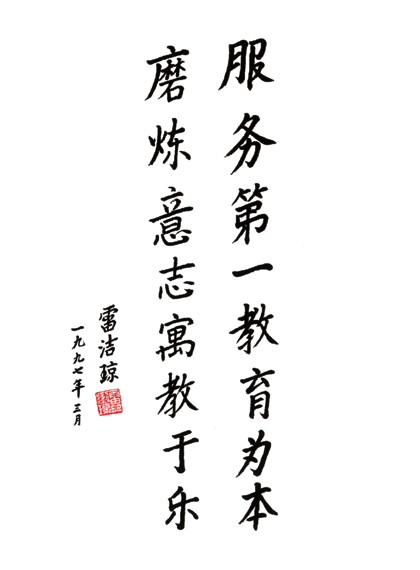 服务第一教育为本
磨炼意志寓教于乐
雷洁琼
一九九七年三月